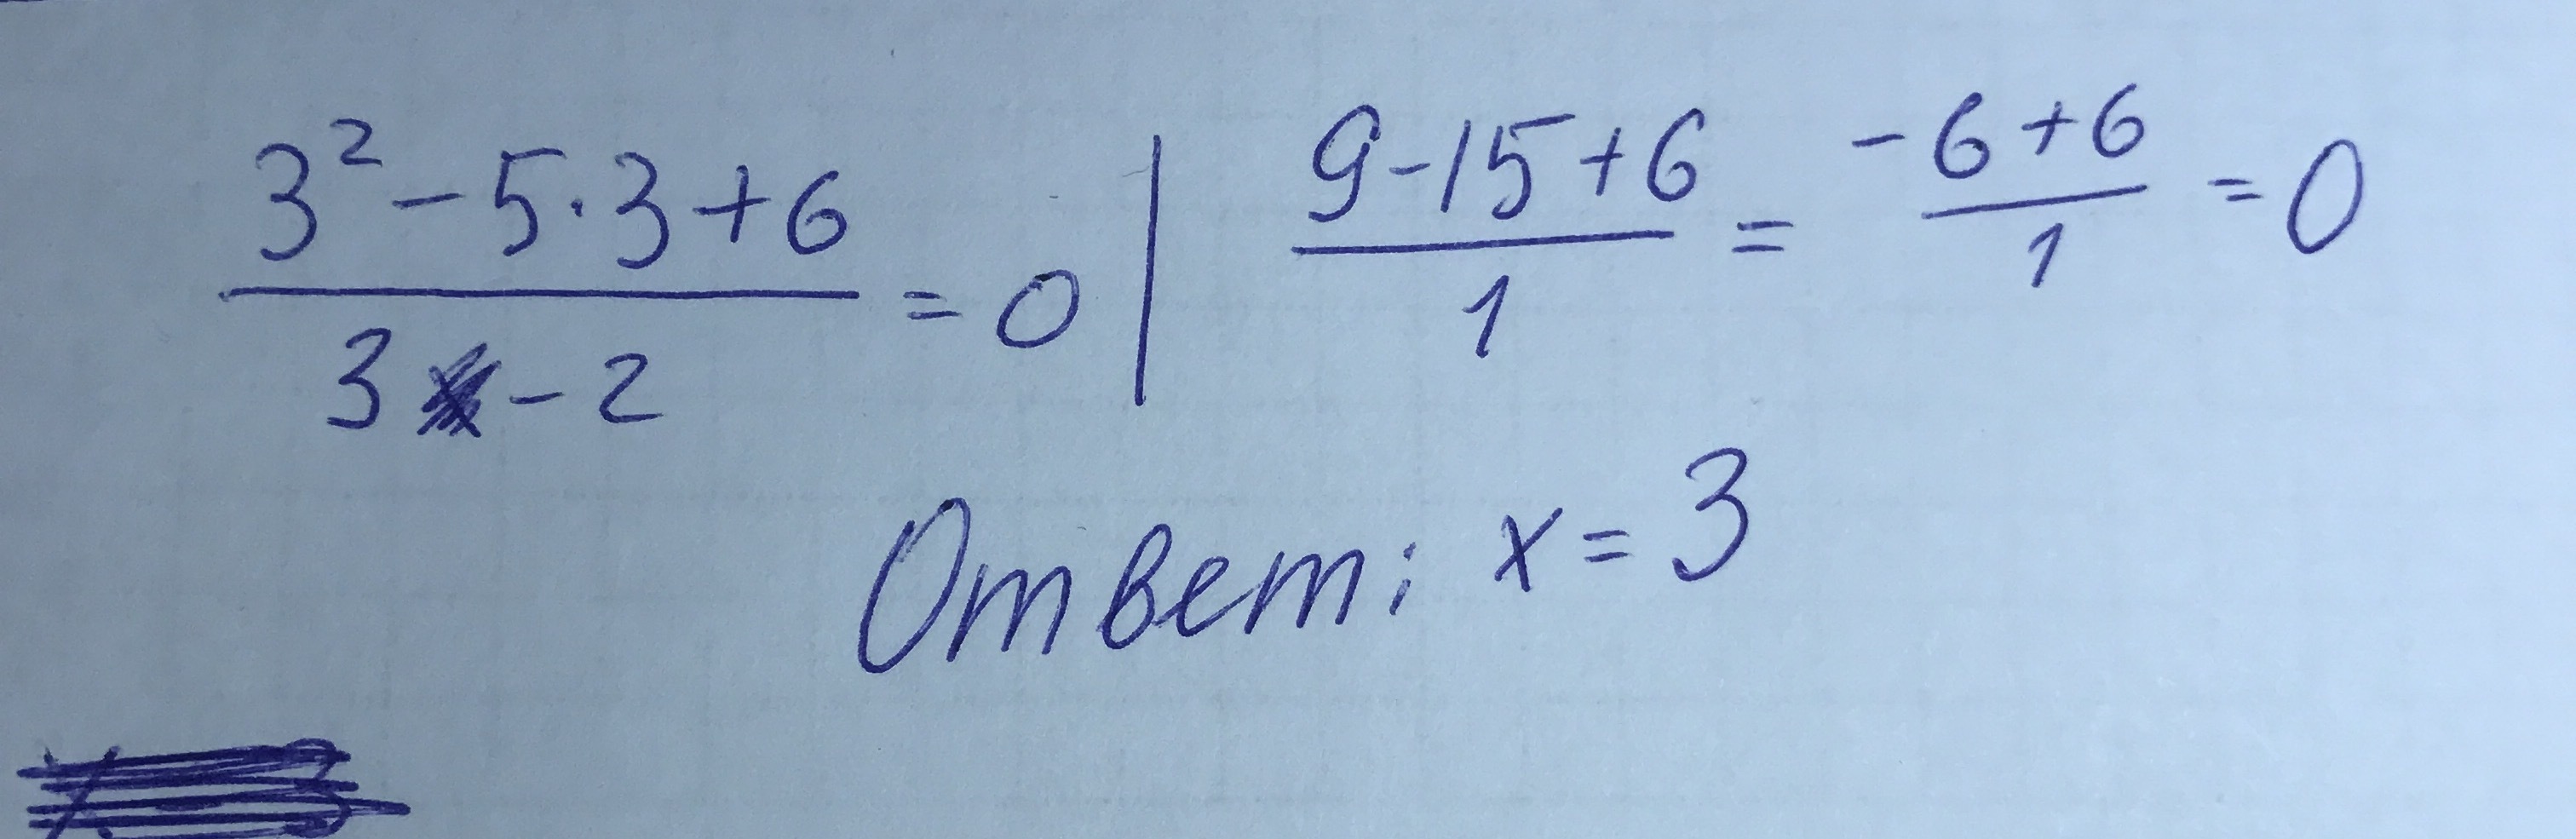 (3² - 5·3 + 6)/(3 - 2) = 0 | (9 - 15 + 6)/1 = (-6 + 6)/1 = 0
Ответ: x = 3